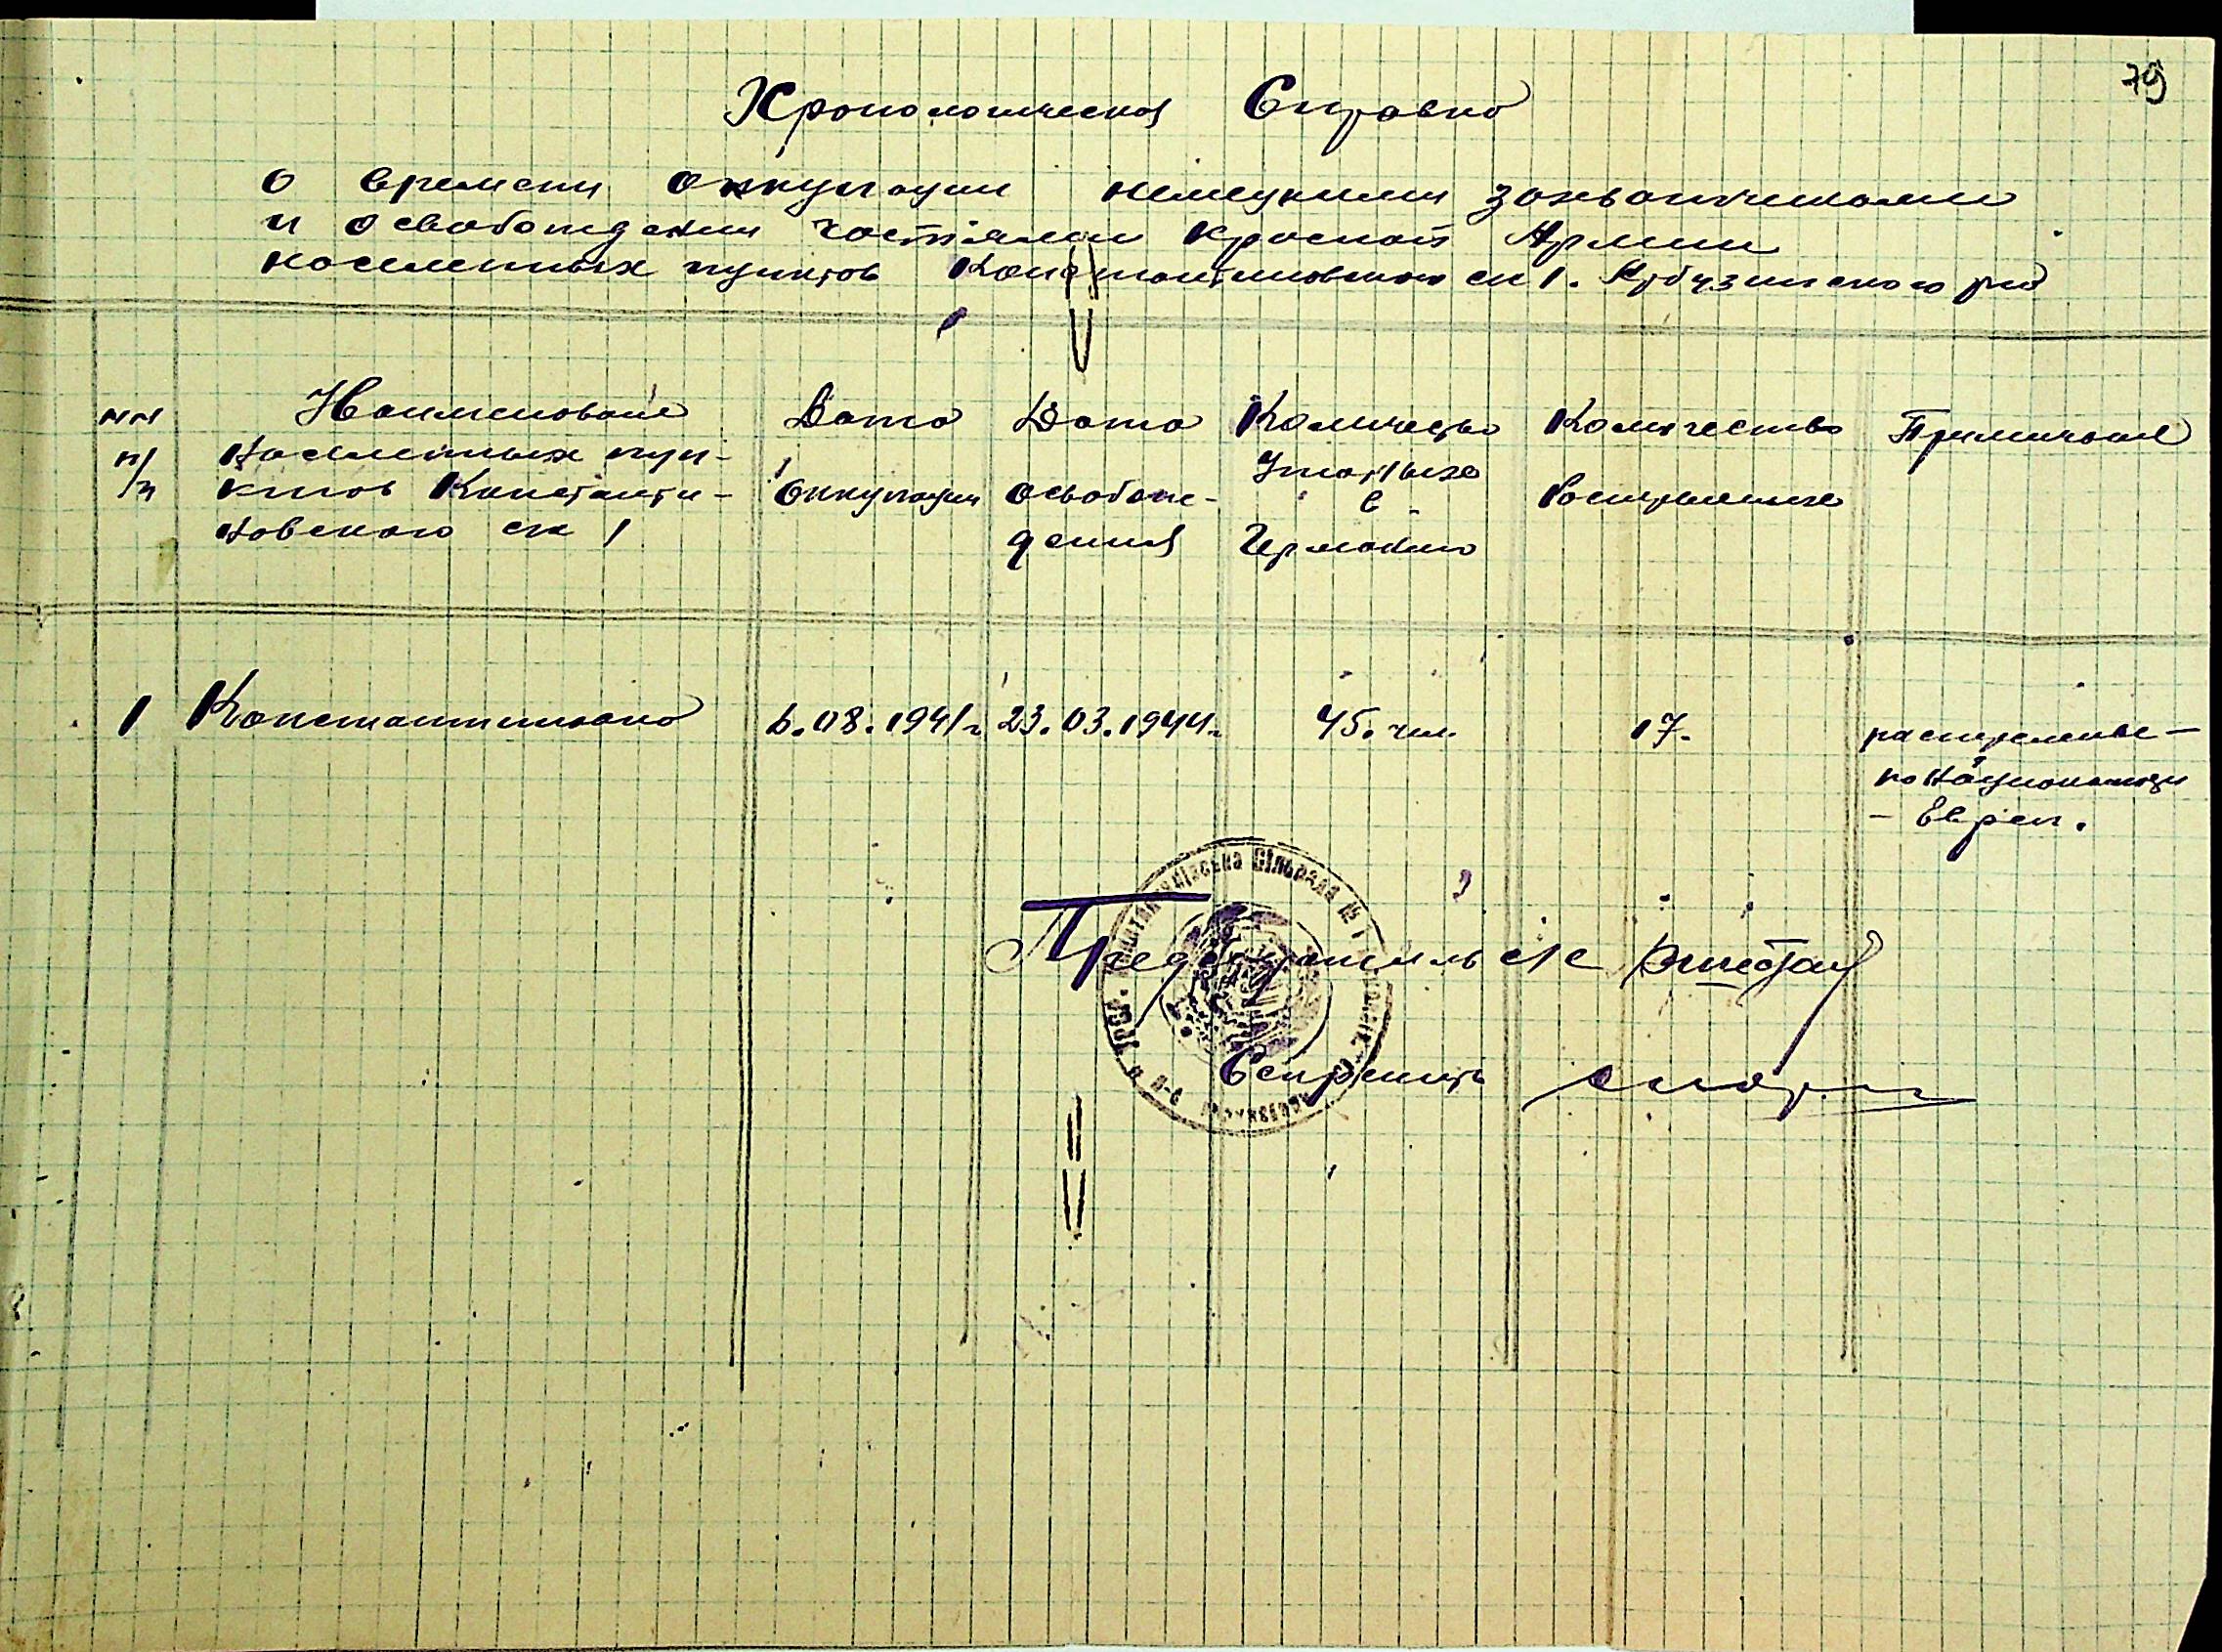 79
Хронологическая Справка
о времени оккупации немецкими захватчиками
и освобождения частями Красной Армии
населенных пунктов Константиновского с/с 1. Арбузинского р-на
№№ п/п
Наименование
населенных пун-
ктов Константи-
новского с/с 1
Дата
оккупации
Дата
освобож-
дения
Количество
Угнатых
в
Германию
Количество
Расстрелянных
Примечание
1 Константиновка 6.08.1941г. 23.03.1944г. 45. чел. 17. расстреляные –
по национальности
– Евреи.
Председатель с/с
Секретарь
сільрада № 1
УРСР